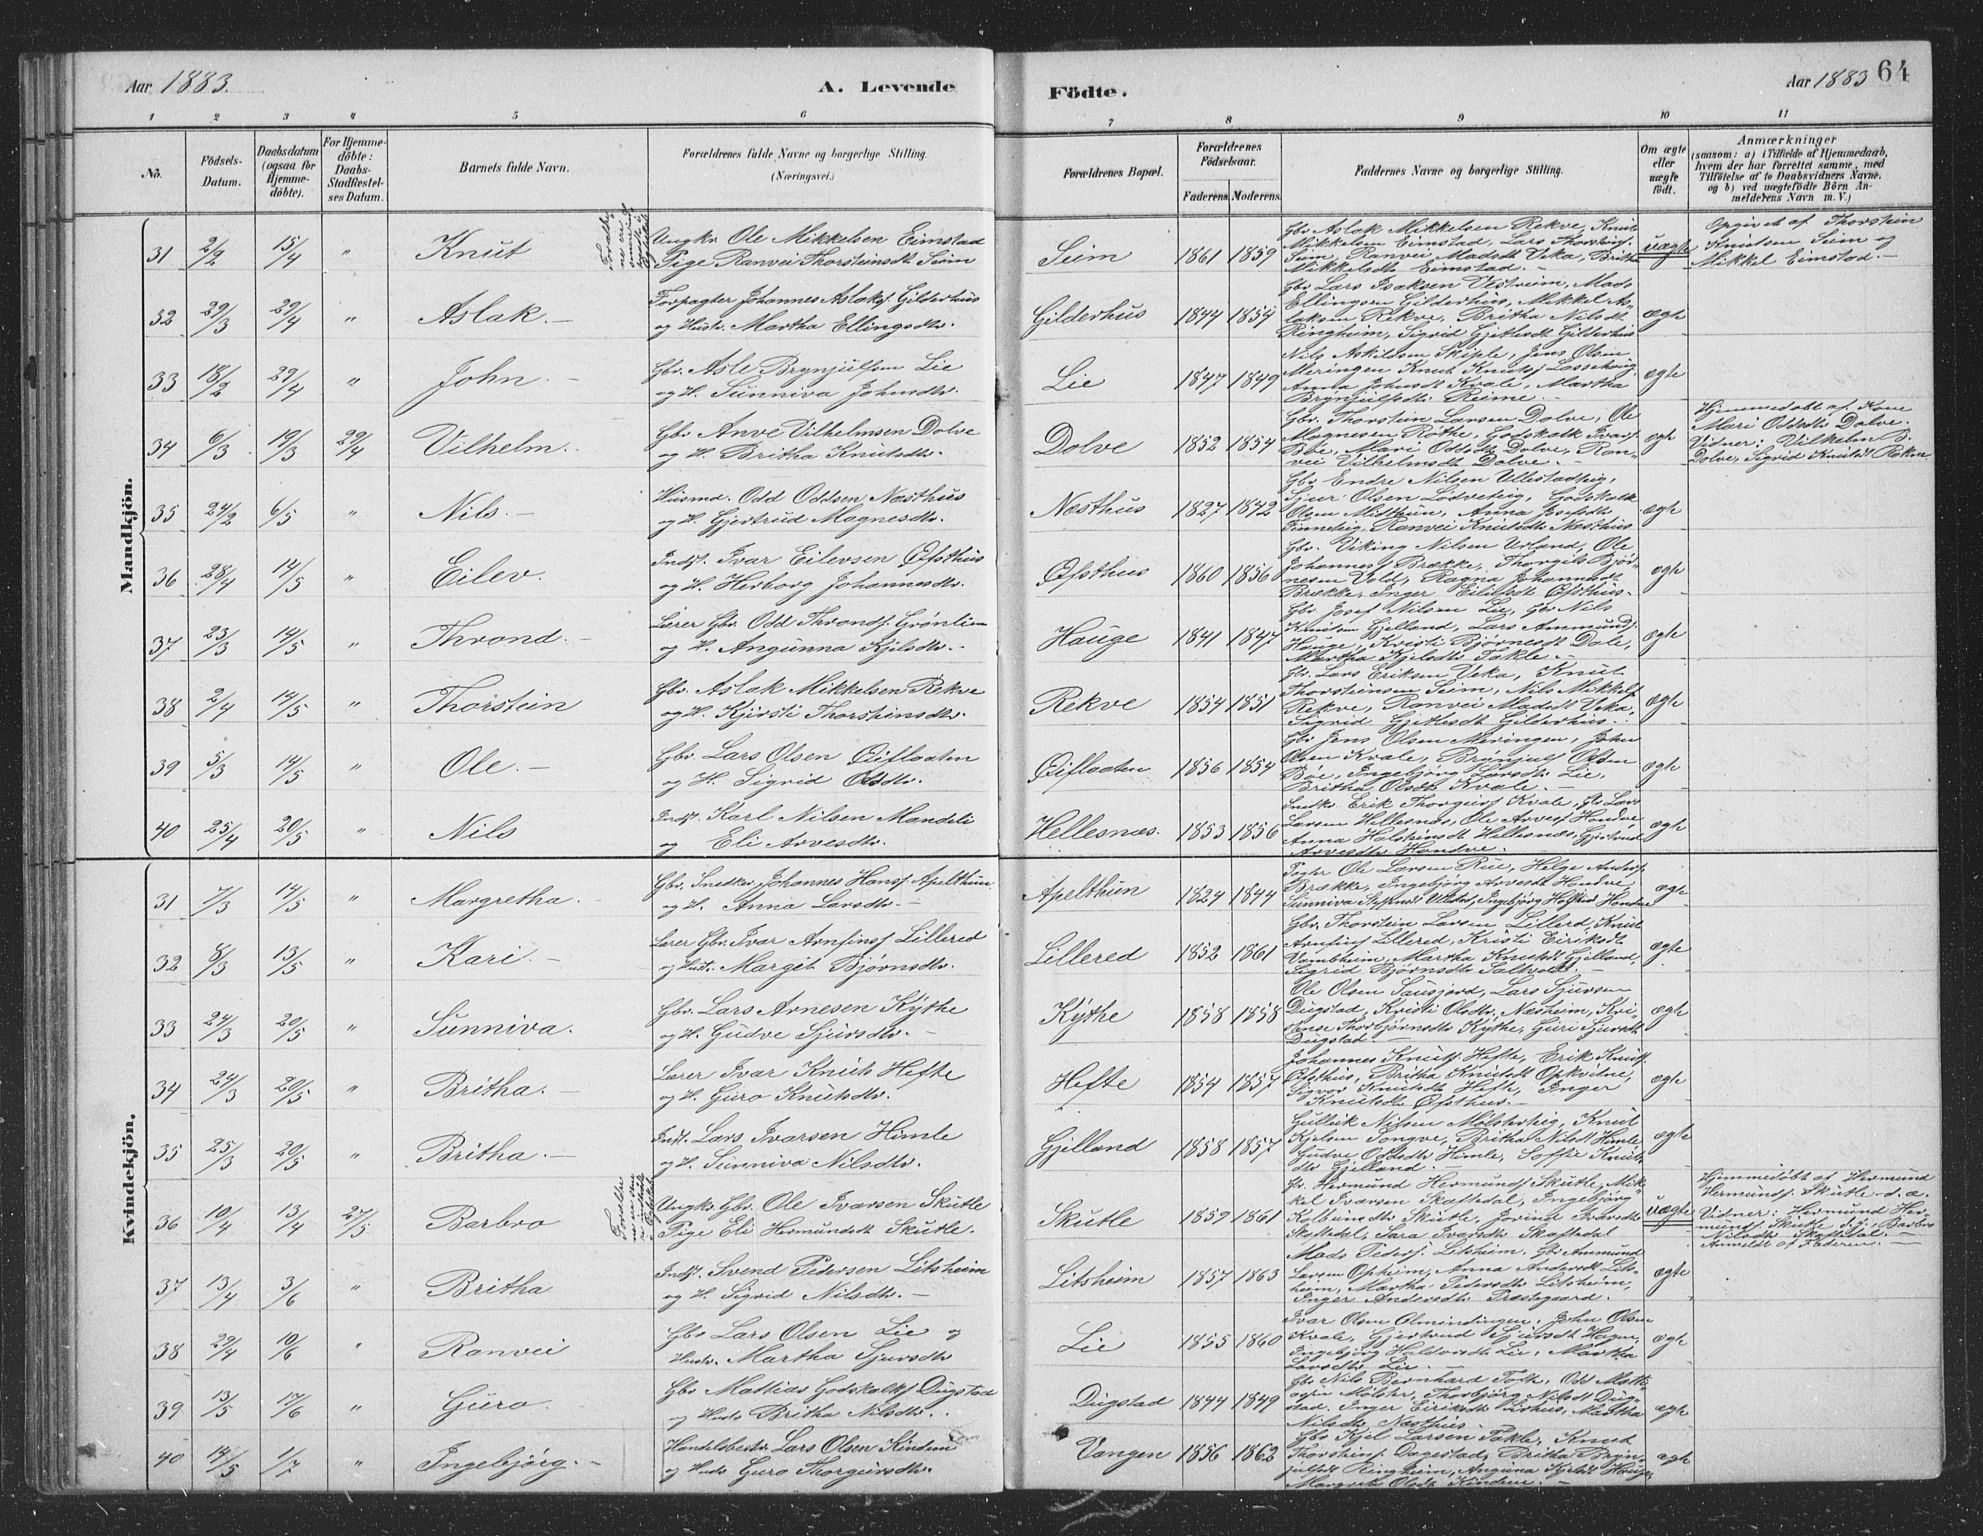 Aar 1883.
A. Levende
Födte.
Aar 1883
64
1 2 3 4 5 6 7 8 9 10 11
No. Födsels-Datum. Daabsdatum (ogsaa for Hjemme-döbte). For Hjemme-döbte: Daabs-Stadfæstel-ses Datum. Barnets fulde Navn. Forældrenes fulde Navne og borgerlige Stilling. (Næringsvei.) Forældrenes Bopæl. Forældrenes Födselsaar. Faderens Moderens. Faddernes Navne og borgerlige Stilling. Om ægte eller uægte födt. Anmærkninger (saasom: a) i Tilfælde af Hjemmedaab, hvem der har forrettet samme, med Tilföielse af to Daabsvidners Navne, og b) ved uægtefödte Börn An-melderens Navn m. V.)
Mandkjön.
31 2/2 15/4 " Knut Ungkr. Ole Mikkelsen Eimstad Pige Ranvei Thorsteinsdt Seim Seim 1861 1859 Gbr Aslak Mikkelsen Rekve, Knut Mikkelsen Eimstad, Lars Thorsteinsf. Seim, Ranvei Madsdt Veka, Britha Mikkelsdt Eimstad. uægte Opgivet af Thorstein Knutsen Seim og Mikkel Eimstad.
32 29/3 29/4 " Aslak. Forpagter Johannes Aslaksf. Gilderhus og Hustr. Martha Ellingsdtr. Gilderhus 1844 1854 Gbr Lars Isaksen Vestreim, Mads Ellingsen Gilderhus, Mikkel As-laksen Rekve, Britha Nilsdt Ringheim, Sigrid Gjetlesdt Gilderhus ægte
33 18/2 29/4 " John. Gbr. Asle Brynjulfsen Lie og H. Sunniva Johnsdtr. Lie 1847 1849 Nils Askildsen Skiple, Jens Olsen Meringen Knut Knutsf. Anna Johnsdt Kvale, Martha Brynjulfsdtr Reime. ægte
34 6/3 19/3 29/4 Vilhelm. Gbr. Anve Vilhelmsen Dolve og H. Britha Knutsdtr. Dolve 1852 1854 Gbr. Thorstein Larsen Dolve, Ole Magnesen Röthe, Godskalk Ivarsf. Böe, Mari Oddsdt Dolve, Ran-vei Vilhelmsdt Dolve. ægte Hjemmedöbt af Kone Mari Oddsdt Dolve. Vidner: Vilhelm B. Dolve, Sigrid Knutsdt
35 24/2 6/5 " Nils. Husmd. Odd Oddsen Næsthus og H. Gjertrud Magnesdtr. Næsthus 1827 1842 Gbr Endre Nilsen Sjur Olsen Lodveteig, Godskalk Olsen Midthun, Anna Josefsdt Ranvei Knutsdt Næsthus ægte
36 28/4 14/5 " Eilev. Indst. Ivar Eilevsen Øfsthus og H. Herborg Johannesdtr. Øfsthus 1860 1856 Gbr. Viking Nilsen Urland, Ole Johannes Brække, Thorgils Bjør-nesen Vold, Ragna Johannesdt Brække, Inger Eilefsdt Øfsthus. ægte
37 23/3 14/5 " Thrond. Lærer Gbr. Odd Throndsf. Grönlien og H. Angunna Kjelsdtr. Hauge 1841 1847 Gbr. Josef Nilsen Lie, Gbr Nils Knutsen Gjelland, Lars Ammundsf. Hauge, Kristi Björnesdt Dale, Martha Kjelsdtr Takle. ægte
38 2/4 14/5 " Thorstein Gbr. Aslak Mikkelsen Rekve og H. Kjersti Thorsteinsdtr. Rekve 1854 1851 Gbr. Lars Eriksen Veka, Knut Thorsteinsen Seim, Nils Mikkelsf. Rekve, Ranvei Madsdt Veka, Sigrid Gjetlesdt Gilderhus. ægte
39 5/3 14/5 " Ole. Gbr. Lars Olsen Eiflaaten og H. Sigrid Olsdtr. Eiflaaten 1856 1854 Gbr Jens Olsen Meringen, John Olsen Kvale, Brynjulf Olsen Böe, Ingebjörg Larsdtr Lie, Britha Olsdt Kvale. ægte
40 25/4 20/5 " Nils Indst. Karl Nilsen Mandeli og Eli Arvesdtr. Hellesnæs. 1853 1856 Snedkr Erik Kvale, Gbr Lars Larsen Hellesnæs, Ole Arvesf. Hondve, Anna Holsteinsdt Hellesnæs, Gjertrud Arvesdtr Hondve. ægte
Kvindekjön.
31 7/3 14/5 " Margretha. Gbr. Snedkr. Johannes Hansf. Apelthun og H. Anna Larsdtr. Apelthun 1824 1844 Ole Larsen Rue, Helge Andersf. Brække, Ingebjörg Arvesdt Hondve Sunniva ægte
32 8/3 13/5 " Kari. Lærer Gbr. Ivar Arnfinsf. Lillered og Hust. Margit Björnsdtr. Lillered 1852 1861 Gbr. Thorstein Larsen Lillered, Knut Arnfinsf. Lillered, Kristi Eiriksdt Vambheim, Martha Knutsdt Gjelland, Sigrid Björnsdt ægte
33 24/3 20/5 " Sunniva. Gbr. Lars Arnesen Kythe og H. Gudve Sjursdtr. Kythe 1858 1858 Ole Olsen Sausjord, Lars Sjursen Dugstad, Kristi Olsdtr. Næsheim, Kri-stense Thorbjörnsdtr Kythe, Guri Sjursdt Dugstad. ægte
34 24/3 20/5 " Britha. Lærer Ivar Knuts Hefte og H. Guro Knutsdtr. Hefte 1854 1857 Johannes Knutsf. Hefte, Erik Knutsf. Øfsthus, Britha Knutsdt Opkvitne, Sigvor Knutsdt Hefte, Inger Knutsdt Øfsthus. ægte
35 25/3 20/5 " Britha. Indst. Lars Ivarsen Himle og H. Sunniva Nilsdtr. Gjelland 1858 1857 Gulleik Nilsen Mölsterteig, Knut Kjelsen Songve, Britha Nilsdt Himle, Gudve Oddsdt Himle, Soffie Knuts-dtr Gjelland. ægte
36 10/4 13/4 27/5 Barbro Ungkr. Gbr. Ole Ivarsen Skutle Pige Eli Hermundsdt Skutle. Skutle 1859 1861 Gbr. Hermund Hermundsf. Skutle, Mik-kel Ivarsen Skaftedal, Ingebjörg Kolbeinsdt Skutle, Jorind Ivarsdtr Skaftedal, Sara Ivarsdtr Skaftedal uægte Hjemmedöbt af Hermund Hermundsf. Skutle s. a. Vidner: Hermund Her-mundsf. Skutle s. s., Barbro Nilsdtr Skaftedal. Anmeldt af Faderen.
37 13/4 3/6 " Britha Indst. Svend Pedersen Litsheim og H. Sigrid Nilsdtr. Litsheim 1857 1863 Mads Pedersf. Litsheim, Gbr Ammund Larsen Opheim, Anna Andersdt Lits-heim, Martha Pedersdtr Litsheim, Inger Andersdtr Prestegaard. ægte
38 29/4 10/6 " Ranvei Gbr Lars Olsen Lie og Hustr. Martha Sjursdtr Lie 1855 1860 Ivar Olsen Olmindingen, John Olsen Kvale, Gjertrud Sjursdt Hagen, Ingebjörg Haldorsdt Lie, Martha Larsdtr Lie. ægte
39 13/5 17/6 " Guro. Gbr Mathias Godskalksf. Dugstad og Hustr Britha Nilsdtr. Dugstad 1844 1849 Gbr Nils Bernhard Tolk, Mölster, Thorbjörg Nilsdt Dug-stad, Inger Eiriksdt Martha Nilsdtr Næsthus. ægte
40 14/5 1/7 " Ingebjörg. Handelsbestr. Lars Olsen Kindem og Hustr Guro Thorgeirsdtr. Vangen 1856 1862 Gbr Kjel Larsen Takle, Knud Thorsteinsf. Dagestad, Britha Bryn-julfsdt Ringheim, Anguna Kjelsdt Hauge, Margrete Olsdt Kindem. ægte